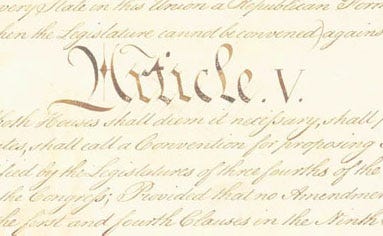 every State in this Union a Republican Form
hen the Legislature cannot be convened) against
Article. V.
both Houses shall deem it necessary, shall p
tes, shall call a Convention for proposing
fied by the Legislatures of three fourths of the
the Congress; Provided that no Amendmen
the first and fourth Clauses in the Ninth